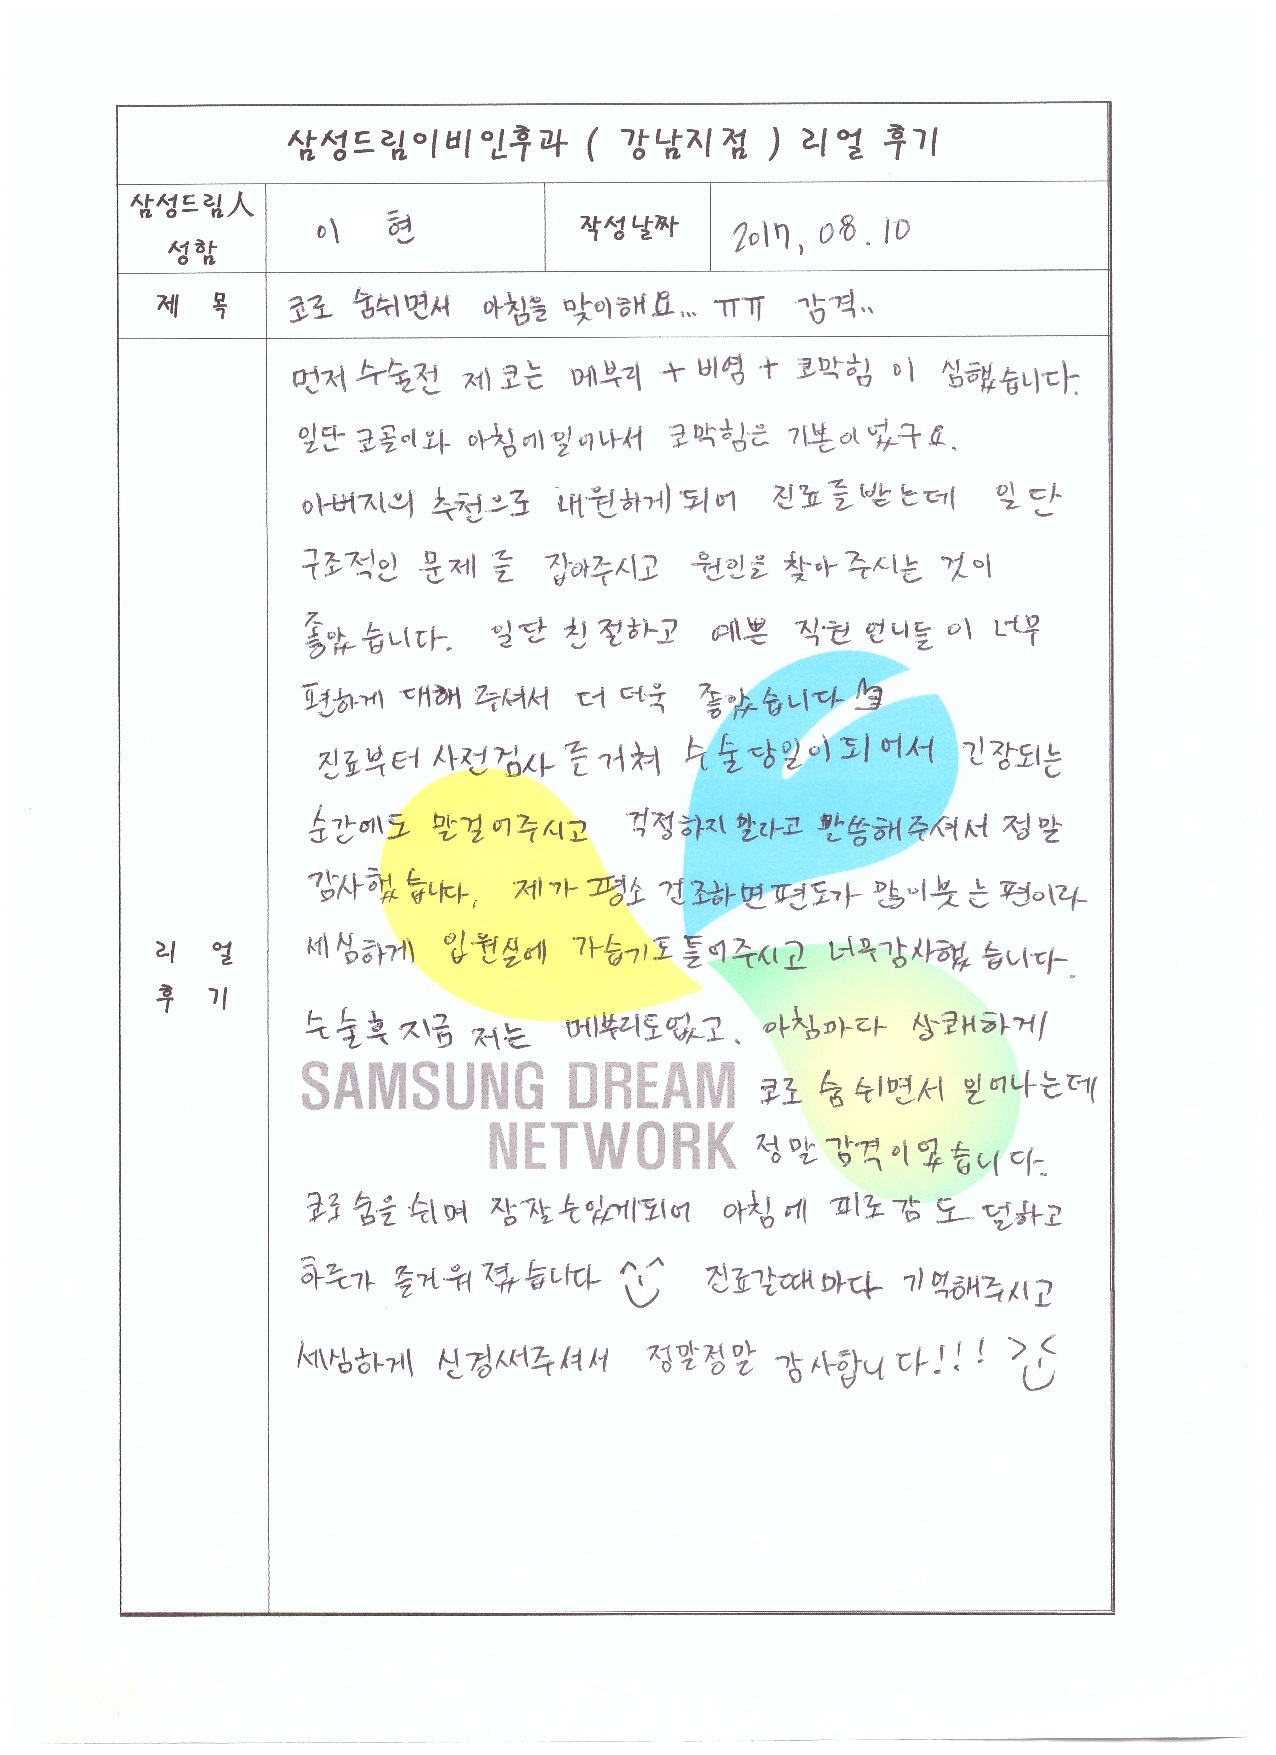 삼성드림이비인후과 ( 강남지점 ) 리얼 후기
삼성드림人
성함
이 현
작성날짜
2017, 08. 10
제 목
코로 숨쉬면서 아침을 맞이해요... ㅠㅠ 감격..
리 얼
후 기
먼저 수술전 제 코는 메부리 + 비염 + 코막힘 이 심했습니다.
일단 코골이와 아침에일어나서 코막힘은 기본이었구요.
아버지의 추천으로 내원하게되어 진료를받는데 일단
구조적인 문제를 잡아주시고 원인을 찾아주시는 것이
좋았습니다. 일단 친절하고 예쁜 직원 언니들이 너무
편하게 대해 주셔서 더 더욱 좋았습니다
진료부터 사전검사를거쳐 수술당일이되어서 긴장되는
순간에도 말걸어주시고 걱정하지말라고 말씀해주셔서 정말
감사했습니다. 제가 평소 건조하면편도가 많이붓는편이라
세심하게 입원실에 가습기도틀어주시고 너무감사했습니다.
수술후지금 저는 메부리도없고. 아침마다 상쾌하게
코로 숨쉬면서 일어나는데
정말 감격이었습니다.
코로 숨을 쉬며 잠잘수있게되어 아침에 피로감도 덜하고
하루가 즐거워졌습니다 진료갈때마다 기억해주시고
세심하게 신경써주셔서 정말정말 감사합니다!!!
SAMSUNG DREAM
NETWORK